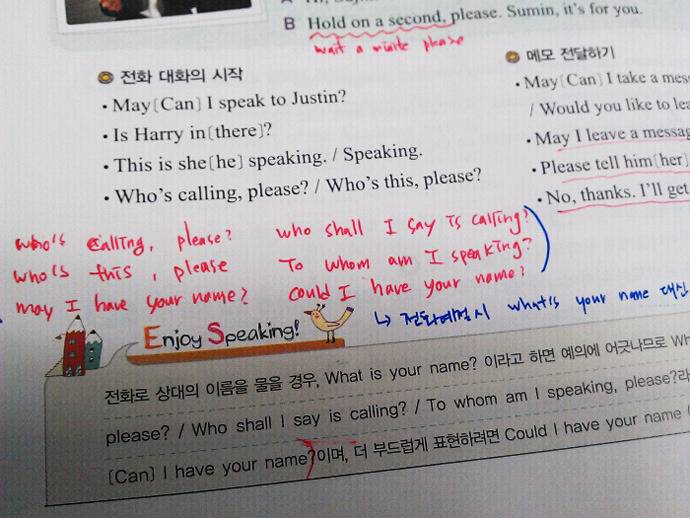 B Hold on a second, please. Sumin, it's for you.
wait a minute please
전화 대화의 시작
• May[Can] I speak to Justin?
• Is Harry in[there]?
• This is she[he] speaking. / Speaking.
• Who's calling, please? / Who's this, please?
메모 전달하기
• May[Can] I take a mes
/ Would you like to lea
• May I leave a messag
• Please tell him[her]
• No, thanks. I'll get
who's calling, please? who shall I say is calling?
who's this, please To whom am I speaking?
may I have your name? could I have your name?
↳ 전화예절시 what's your name 대신
Enjoy Speaking!
전화로 상대의 이름을 물을 경우, What is your name? 이라고 하면 예의에 어긋나므로 Wh
please? / Who shall I say is calling? / To whom am I speaking, please?라
[Can] I have your name?이며, 더 부드럽게 표현하려면 Could I have your name